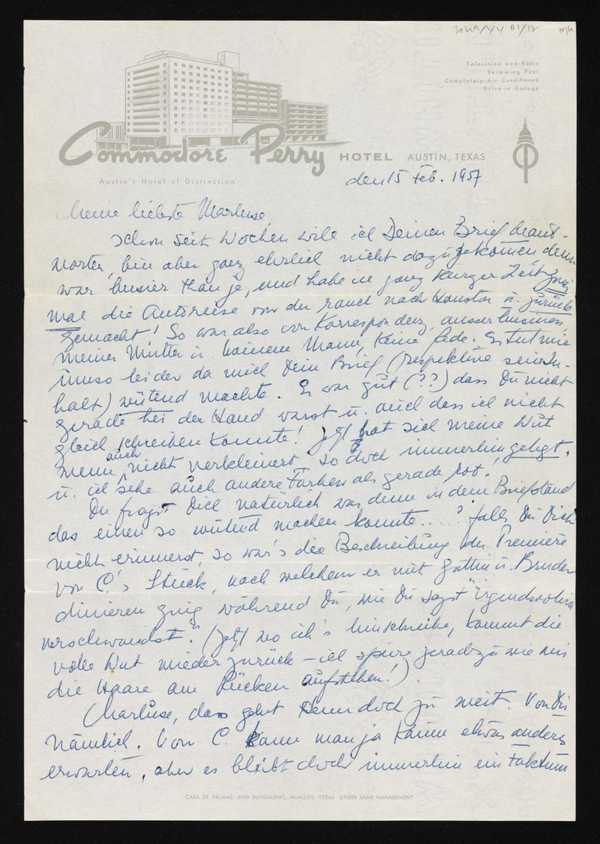 Television and Radio
Swimming Pool
Completely Air Conditioned
Drive-in Garage
Commodore Perry HOTEL AUSTIN, TEXAS
Austin's Hotel of Distinction
den 15 Feb. 1957
Meine liebste Marluse,
schon seit Wochen will ich Deinen Brief beant-
worten, bin aber ganz ehrlich nicht dazu gekommen denn
war immer Hans je, und habe in ganz kurzer Zeit
mal die Autoreise von der ranch nach Houston u. zurück
gemacht! So war also von Korrespondenz, ausser business
meiner Mutter u. meinem Mann, keine Rede. Es tut mir
umso leider da mich Dein Brief (respektive sein In-
halt) wütend machte. Es war gut (??) dass Du nicht
gerade bei der Hand warst u. auch dass ich nicht
gleich schreiben konnte! Jetzt hat sich meine Wut
wenn auch nicht verkleinert, so doch immerhin gelegt,
u. ich sehe auch andere Farben als gerade rot.
Du fragst Dich natürlich was denn in dem Brief stand
das einen so wütend machen konnte....? falls Du Dich
nicht erinnerst, so war's die Beschreibung der Premiere
von C.'s Stück, nach welchem er mit Gattin u. Bruder
dinieren ging während Du, wie Du sagst "irgendwohin
verschwandst". (Jetzt wo ich's hinschreibe, kommt die
volle Wut wieder zurück – ich spüre geradezu wie mir
die Haare am Rücken aufstehen!).
Marluse, das geht denn doch zu weit. Von Dir
nämlich. Von C. kann man ja kaum etwas anderes
erwarten, aber es bleibt doch immerhin ein Faktum
CASA DE PALMAS AND BUNGALOWS, McALLEN, TEXAS UNDER SAME MANAGEMENT